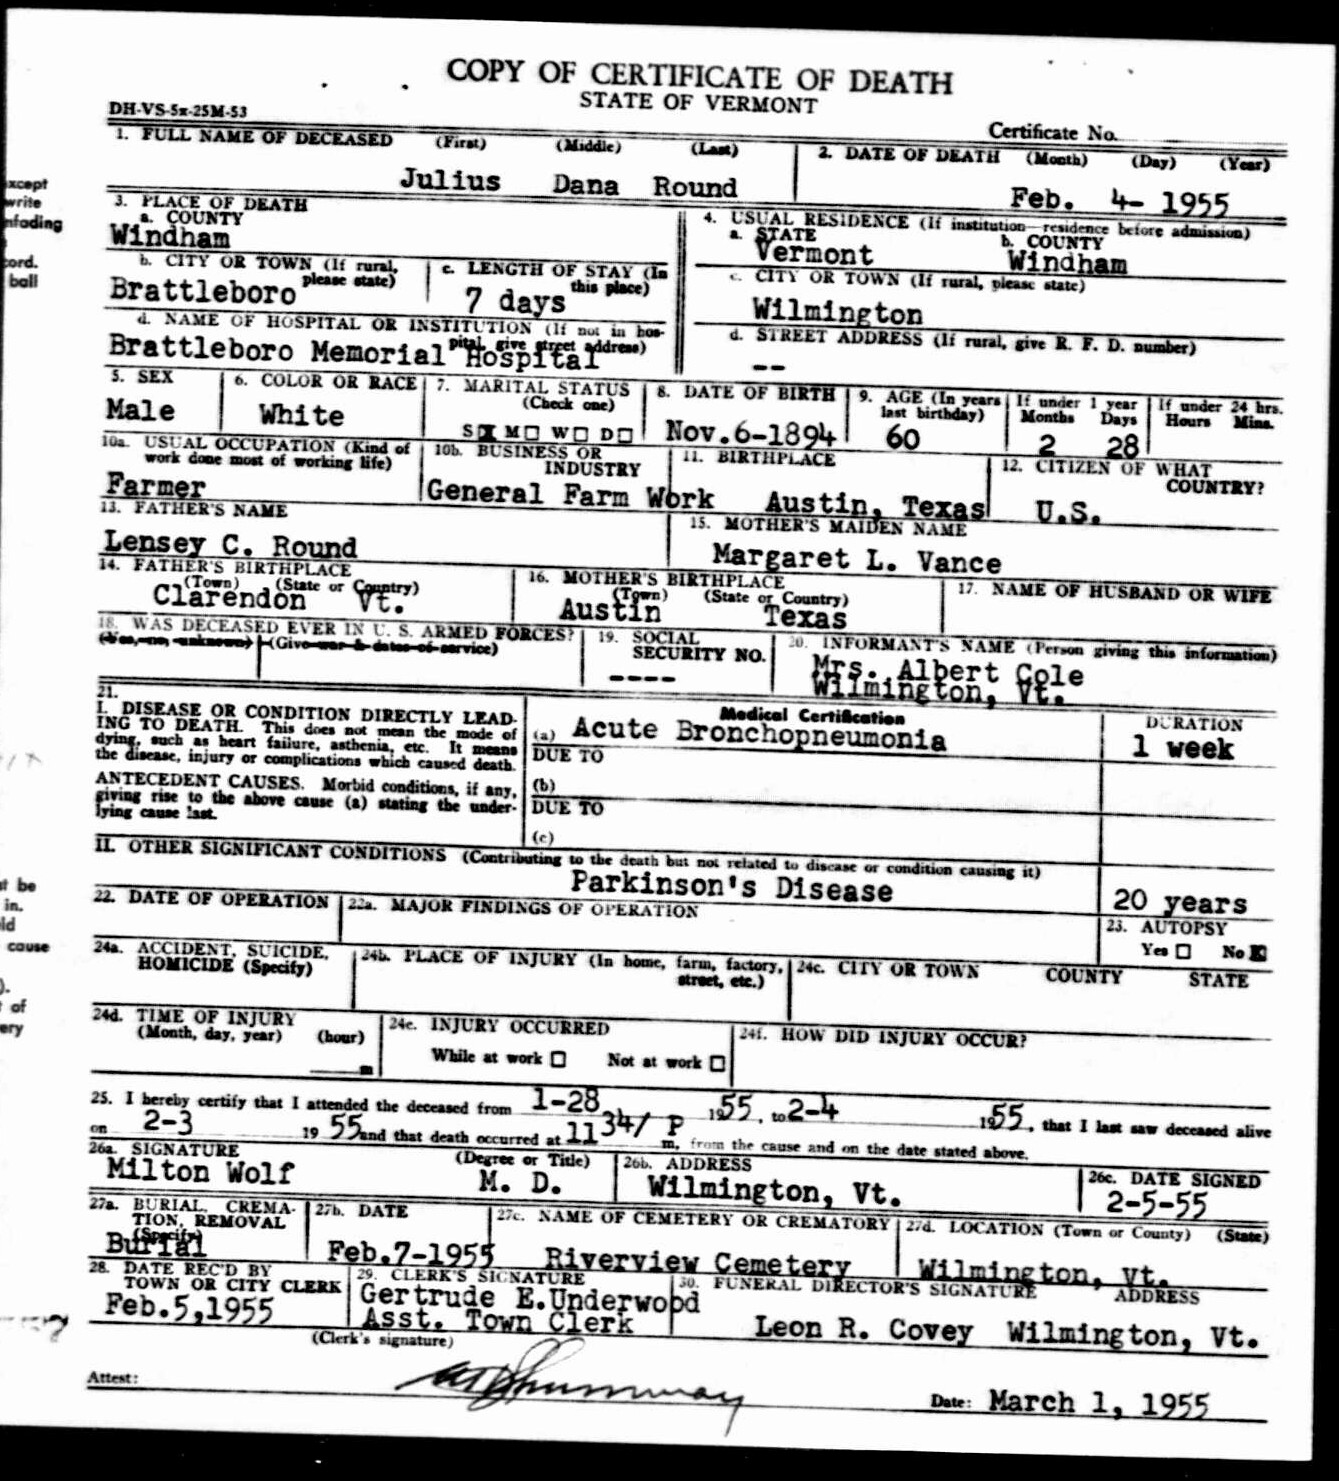 COPY OF CERTIFICATE OF DEATH
STATE OF VERMONT
DH-VS-5x-25M-53
Certificate No.
1. FULL NAME OF DECEASED (First) (Middle) (Last)
Julius Dana Round
2. DATE OF DEATH (Month) (Day) (Year)
Feb. 4- 1955
3. PLACE OF DEATH
a. COUNTY
Windham
b. CITY OR TOWN (If rural, please state)
Brattleboro
c. LENGTH OF STAY (In this place)
7 days
d. NAME OF HOSPITAL OR INSTITUTION (If not in hos-
pital, give street address)
Brattleboro Memorial Hospital
4. USUAL RESIDENCE (If institution—residence before admission)
a. STATE
Vermont
b. COUNTY
Windham
c. CITY OR TOWN (If rural, please state)
Wilmington
d. STREET ADDRESS (If rural, give R. F. D. number)
--
5. SEX
Male
6. COLOR OR RACE
White
7. MARITAL STATUS
(Check one)
S☒ M☐ W☐ D☐
8. DATE OF BIRTH
Nov.6-1894
9. AGE (In years
last birthday)
60
If under 1 year
Months Days
2 28
If under 24 hrs.
Hours Mins.
10a. USUAL OCCUPATION (Kind of
work done most of working life)
Farmer
10b. BUSINESS OR
INDUSTRY
General Farm Work
11. BIRTHPLACE
Austin, Texas
12. CITIZEN OF WHAT
COUNTRY?
U.S.
13. FATHER'S NAME
Lensey C. Round
15. MOTHER'S MAIDEN NAME
Margaret L. Vance
14. FATHER'S BIRTHPLACE
(Town) (State or Country)
Clarendon Vt.
16. MOTHER'S BIRTHPLACE
(Town) (State or Country)
Austin Texas
17. NAME OF HUSBAND OR WIFE
18. WAS DECEASED EVER IN U. S. ARMED FORCES?
(Yes, no, unknown) (Give war & dates of service)
19. SOCIAL
SECURITY NO.
----
20. INFORMANT'S NAME (Person giving this information)
Mrs. Albert Cole
Wilmington, Vt.
21.
I. DISEASE OR CONDITION DIRECTLY LEAD-
ING TO DEATH. This does not mean the mode of
dying, such as heart failure, asthenia, etc. It means
the disease, injury or complications which caused death.
ANTECEDENT CAUSES. Morbid conditions, if any,
giving rise to the above cause (a) stating the under-
lying cause last.
Medical Certification
(a) Acute Bronchopneumonia
DUE TO
(b)
DUE TO
(c)
DURATION
1 week
II. OTHER SIGNIFICANT CONDITIONS (Contributing to the death but not related to disease or condition causing it)
Parkinson's Disease
20 years
22. DATE OF OPERATION
22a. MAJOR FINDINGS OF OPERATION
23. AUTOPSY
Yes ☐ No ☒
24a. ACCIDENT, SUICIDE,
HOMICIDE (Specify)
24b. PLACE OF INJURY (In home, farm, factory,
street, etc.)
24c. CITY OR TOWN COUNTY STATE
24d. TIME OF INJURY
(Month, day, year) (hour)
m
24e. INJURY OCCURRED
While at work ☐ Not at work ☐
24f. HOW DID INJURY OCCUR?
25. I hereby certify that I attended the deceased from 1-28 1955, to 2-4 1955, that I last saw deceased alive
on 2-3 19 55 and that death occurred at 11 34/ P m, from the cause and on the date stated above.
26a. SIGNATURE (Degree or Title)
Milton Wolf M. D.
26b. ADDRESS
Wilmington, Vt.
26c. DATE SIGNED
2-5-55
27a. BURIAL, CREMA-
TION, REMOVAL
(Specify)
Burial
27b. DATE
Feb.7-1955
27c. NAME OF CEMETERY OR CREMATORY
Riverview Cemetery
27d. LOCATION (Town or County) (State)
Wilmington, Vt.
28. DATE REC'D BY
TOWN OR CITY CLERK
Feb.5,1955
29. CLERK'S SIGNATURE
Gertrude E.Underwood
Asst. Town Clerk
30. FUNERAL DIRECTOR'S SIGNATURE ADDRESS
Leon R. Covey Wilmington, Vt.
(Clerk's signature)
Attest:
Date: March 1, 1955
except
write
cord.
ball
be
in.
cause
of